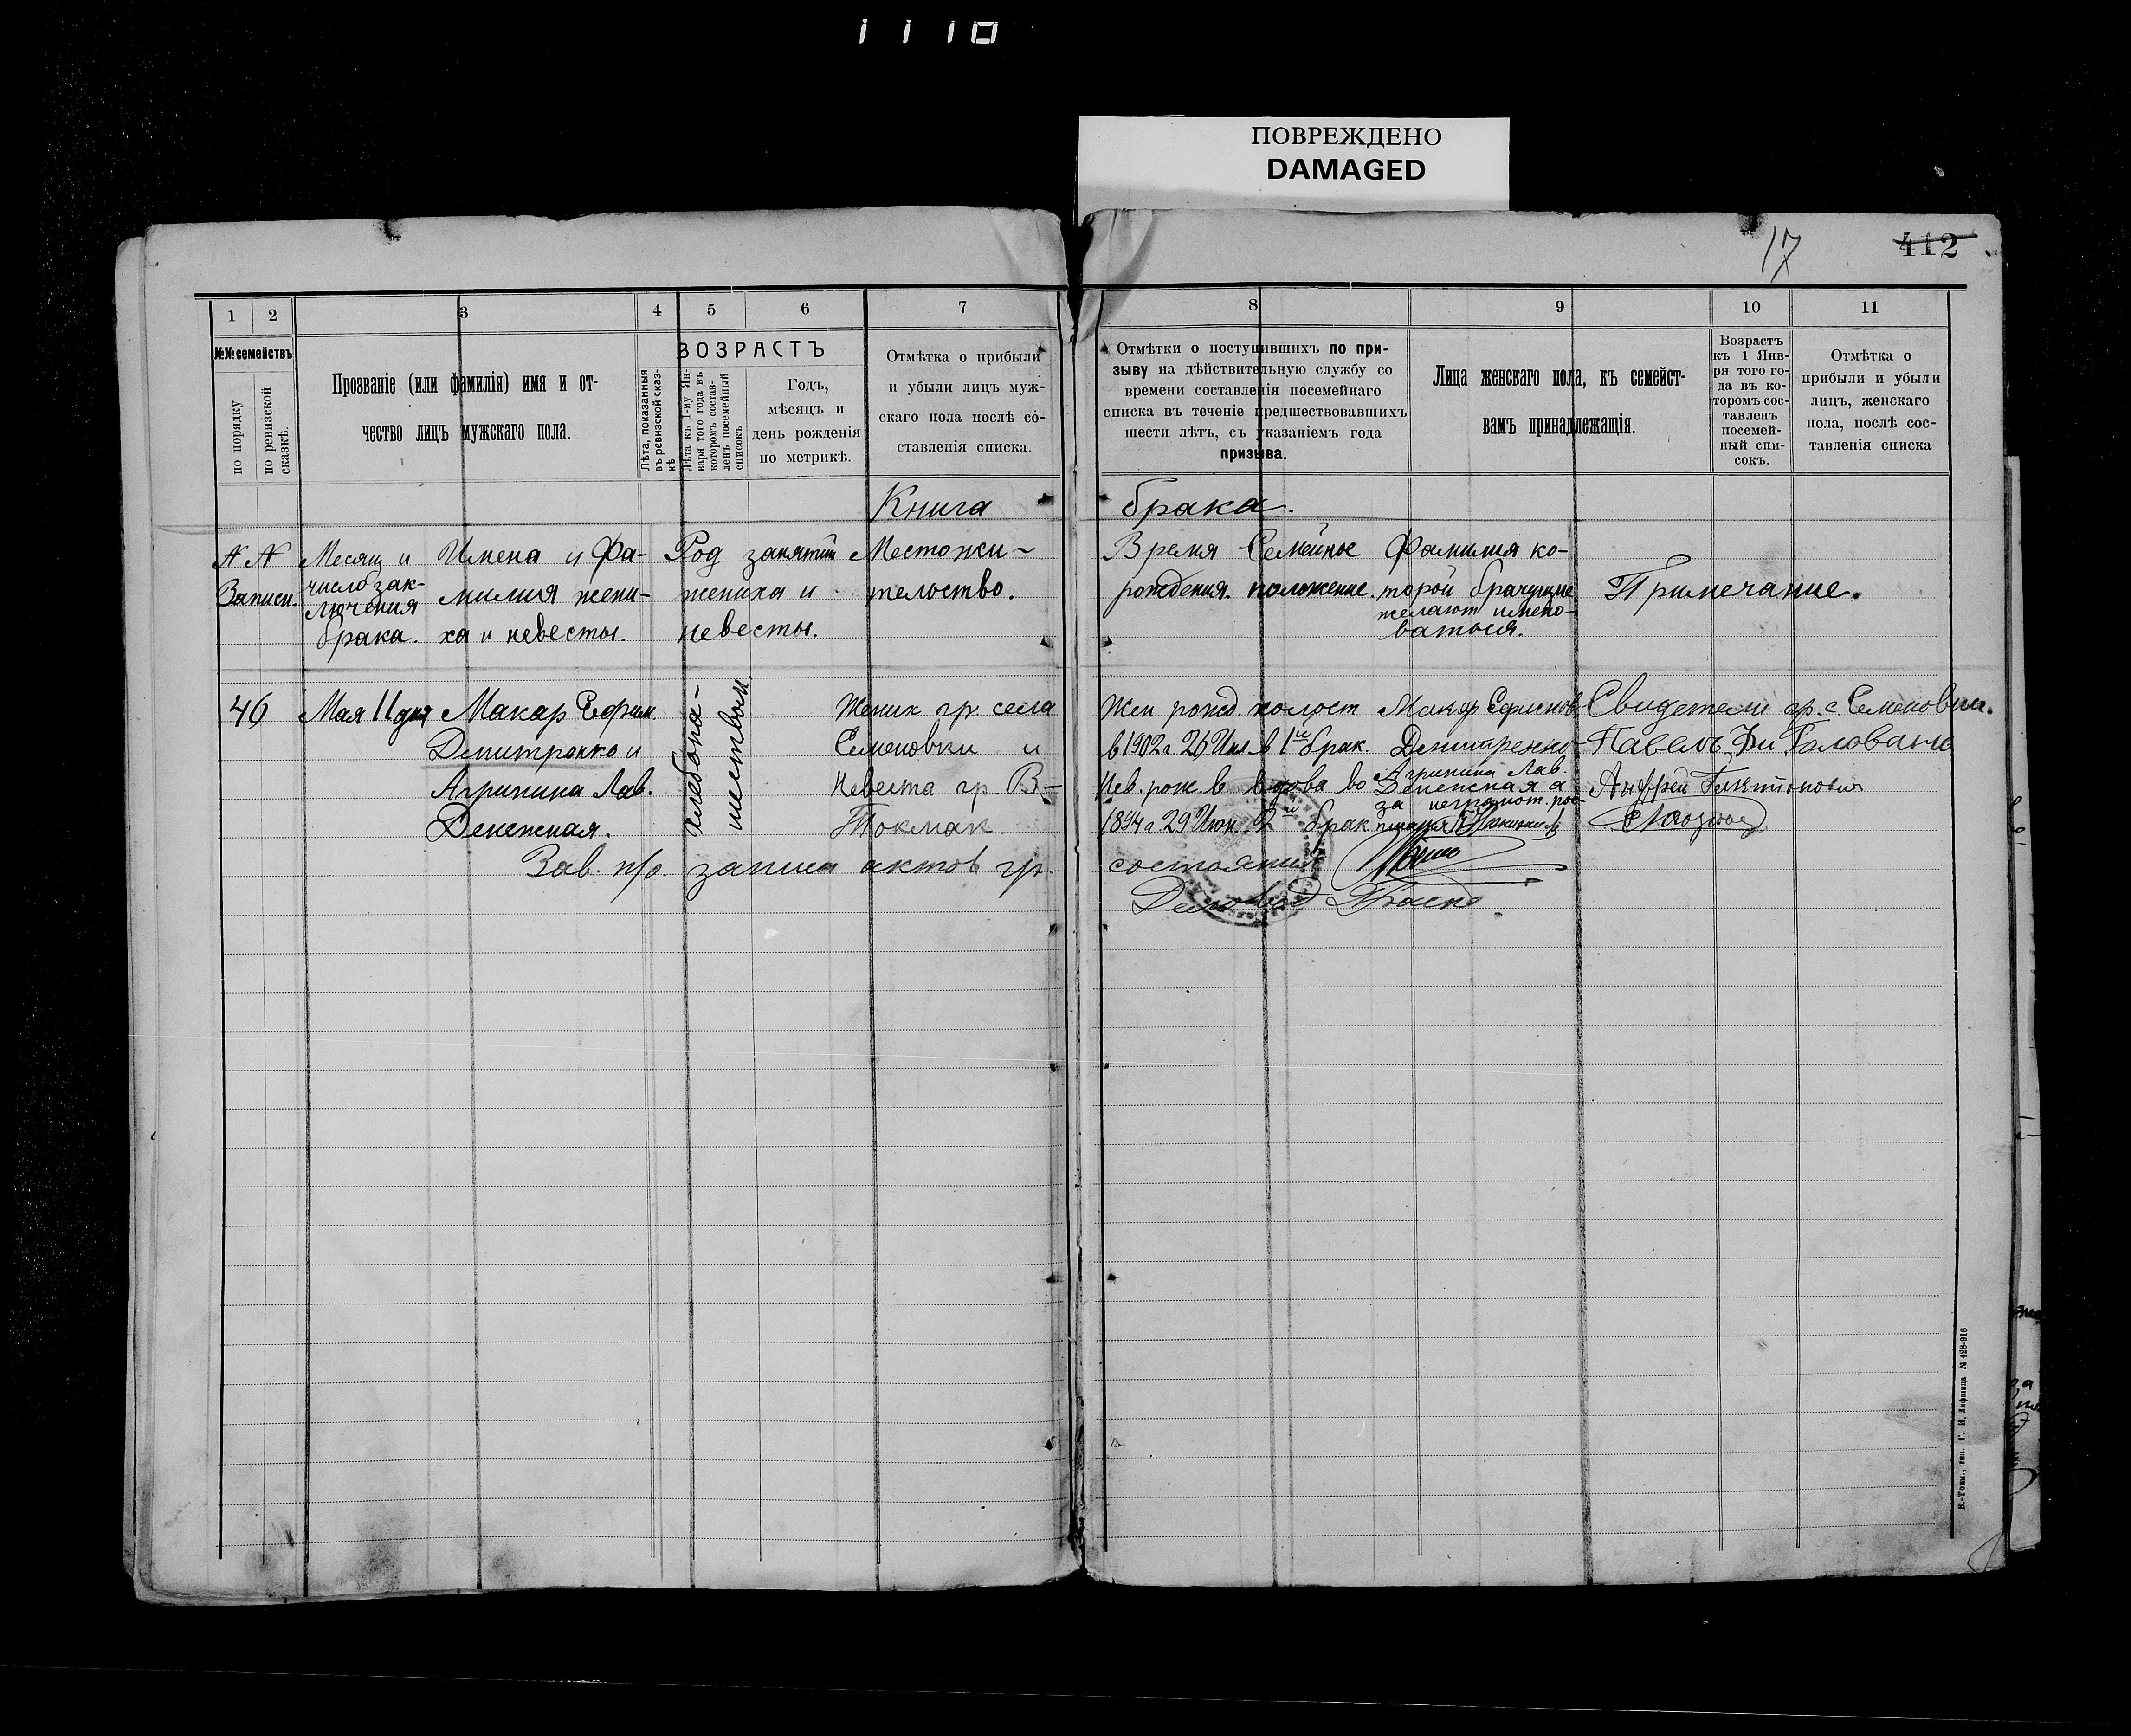 1110
ПОВРЕЖДЕНО
DAMAGED
17
412
1 2 3 4 5 6 7 8 9 10 11
№№ семействъ
по порядку
по ревизской сказкѣ.
Прозваніе (или фамилія) имя и от-
чество лицъ мужскаго пола.
Лѣта, показанныя
въ ревизской сказ-
кѣ
ВОЗРАСТЪ
Лѣта къ 1-му Ян-
варя того года въ
которомъ состав-
ленъ посемейный
списокъ
Годъ,
мѣсяцъ и
день рожденія
по метрикѣ.
Отмѣтка о прибыли
и убыли лицъ муж-
скаго пола послѣ со-
ставленія списка.
Отмѣтки о поступившихъ по при-
зыву на дѣйствительную службу со
времени составленія посемейнаго
списка въ теченіе предшествовавшихъ
шести лѣтъ, съ указаніемъ года
призыва.
Лица женскаго пола, къ семейст-
вамъ принадлежащія.
Возрастъ
къ 1 Янв-
ря того го-
да въ ко-
торомъ сос-
тавленъ
посемей-
ный спи-
сокъ.
Отмѣтка о
прибыли и убыли
лицъ, женскаго
пола, послѣ сос-
тавленія списка
Книга брака.
N N
Записи.
Месяц и
число зак-
лючения
брака.
Имена и Фа-
милия жени-
ха и невесты.
Род занятий
жениха и
невесты.
Местожи-
тельство.
Время
рождения.
Семейное
положение.
Фамилия ко-
торой брачущие
желают имено-
ваться.
Примечание.
46
Мая 11 дня
Макар Ефим.
Дмитренко и
Агрипина Лав.
Денежная.
хлебопа-
шеством.
Жених гр. села
Семеновки и
Невеста гр. В-
Токмак
Жен рожд.
в 1902 г. 26
Нев. рож. в
1894 г. 29
холост
в 1й брак.
вдова во
2й брак
Макар Ефимов
Дмитренко
Агрипина Лав.
Денежная а
за неграмот. рос-
Свидетели гр. с. Семеновки.
Павелъ
Андрей
Зав. п/о. записи актов гр. состояния
Деловод
В.-Токм., тип. Г. И. Лифшица № 428-916